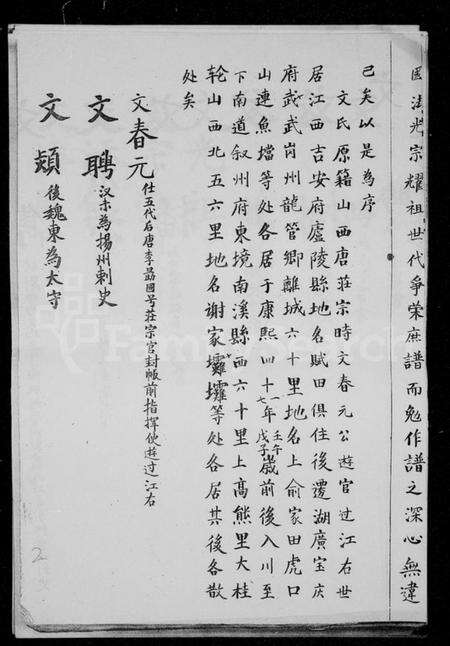 國法光宗耀祖世代爭榮庶譜而勉作譜之深心無違
已矣以是為序
文氏原籍山西唐莊宗時文春元公遊官过江右世
居江西吉安府廬陵縣地名賦田俱住後遷湖廣宝庆
府武武岗州龍管鄉離城六十里地名上俞家田虎口
山連魚壋等处各居于康熙四十一年壬午七戊子歲前後入川至
下南道叙州府東境南溪縣西六十里上高熊里大桂
轮山西北五六里地名谢家壩壩等处各居其後各散
处矣
文春元 仕五代后唐李勗国号莊宗官封帳前指揮使遊过江右
文聘 汉末為揚州刺史
文 後魏東為太守
2